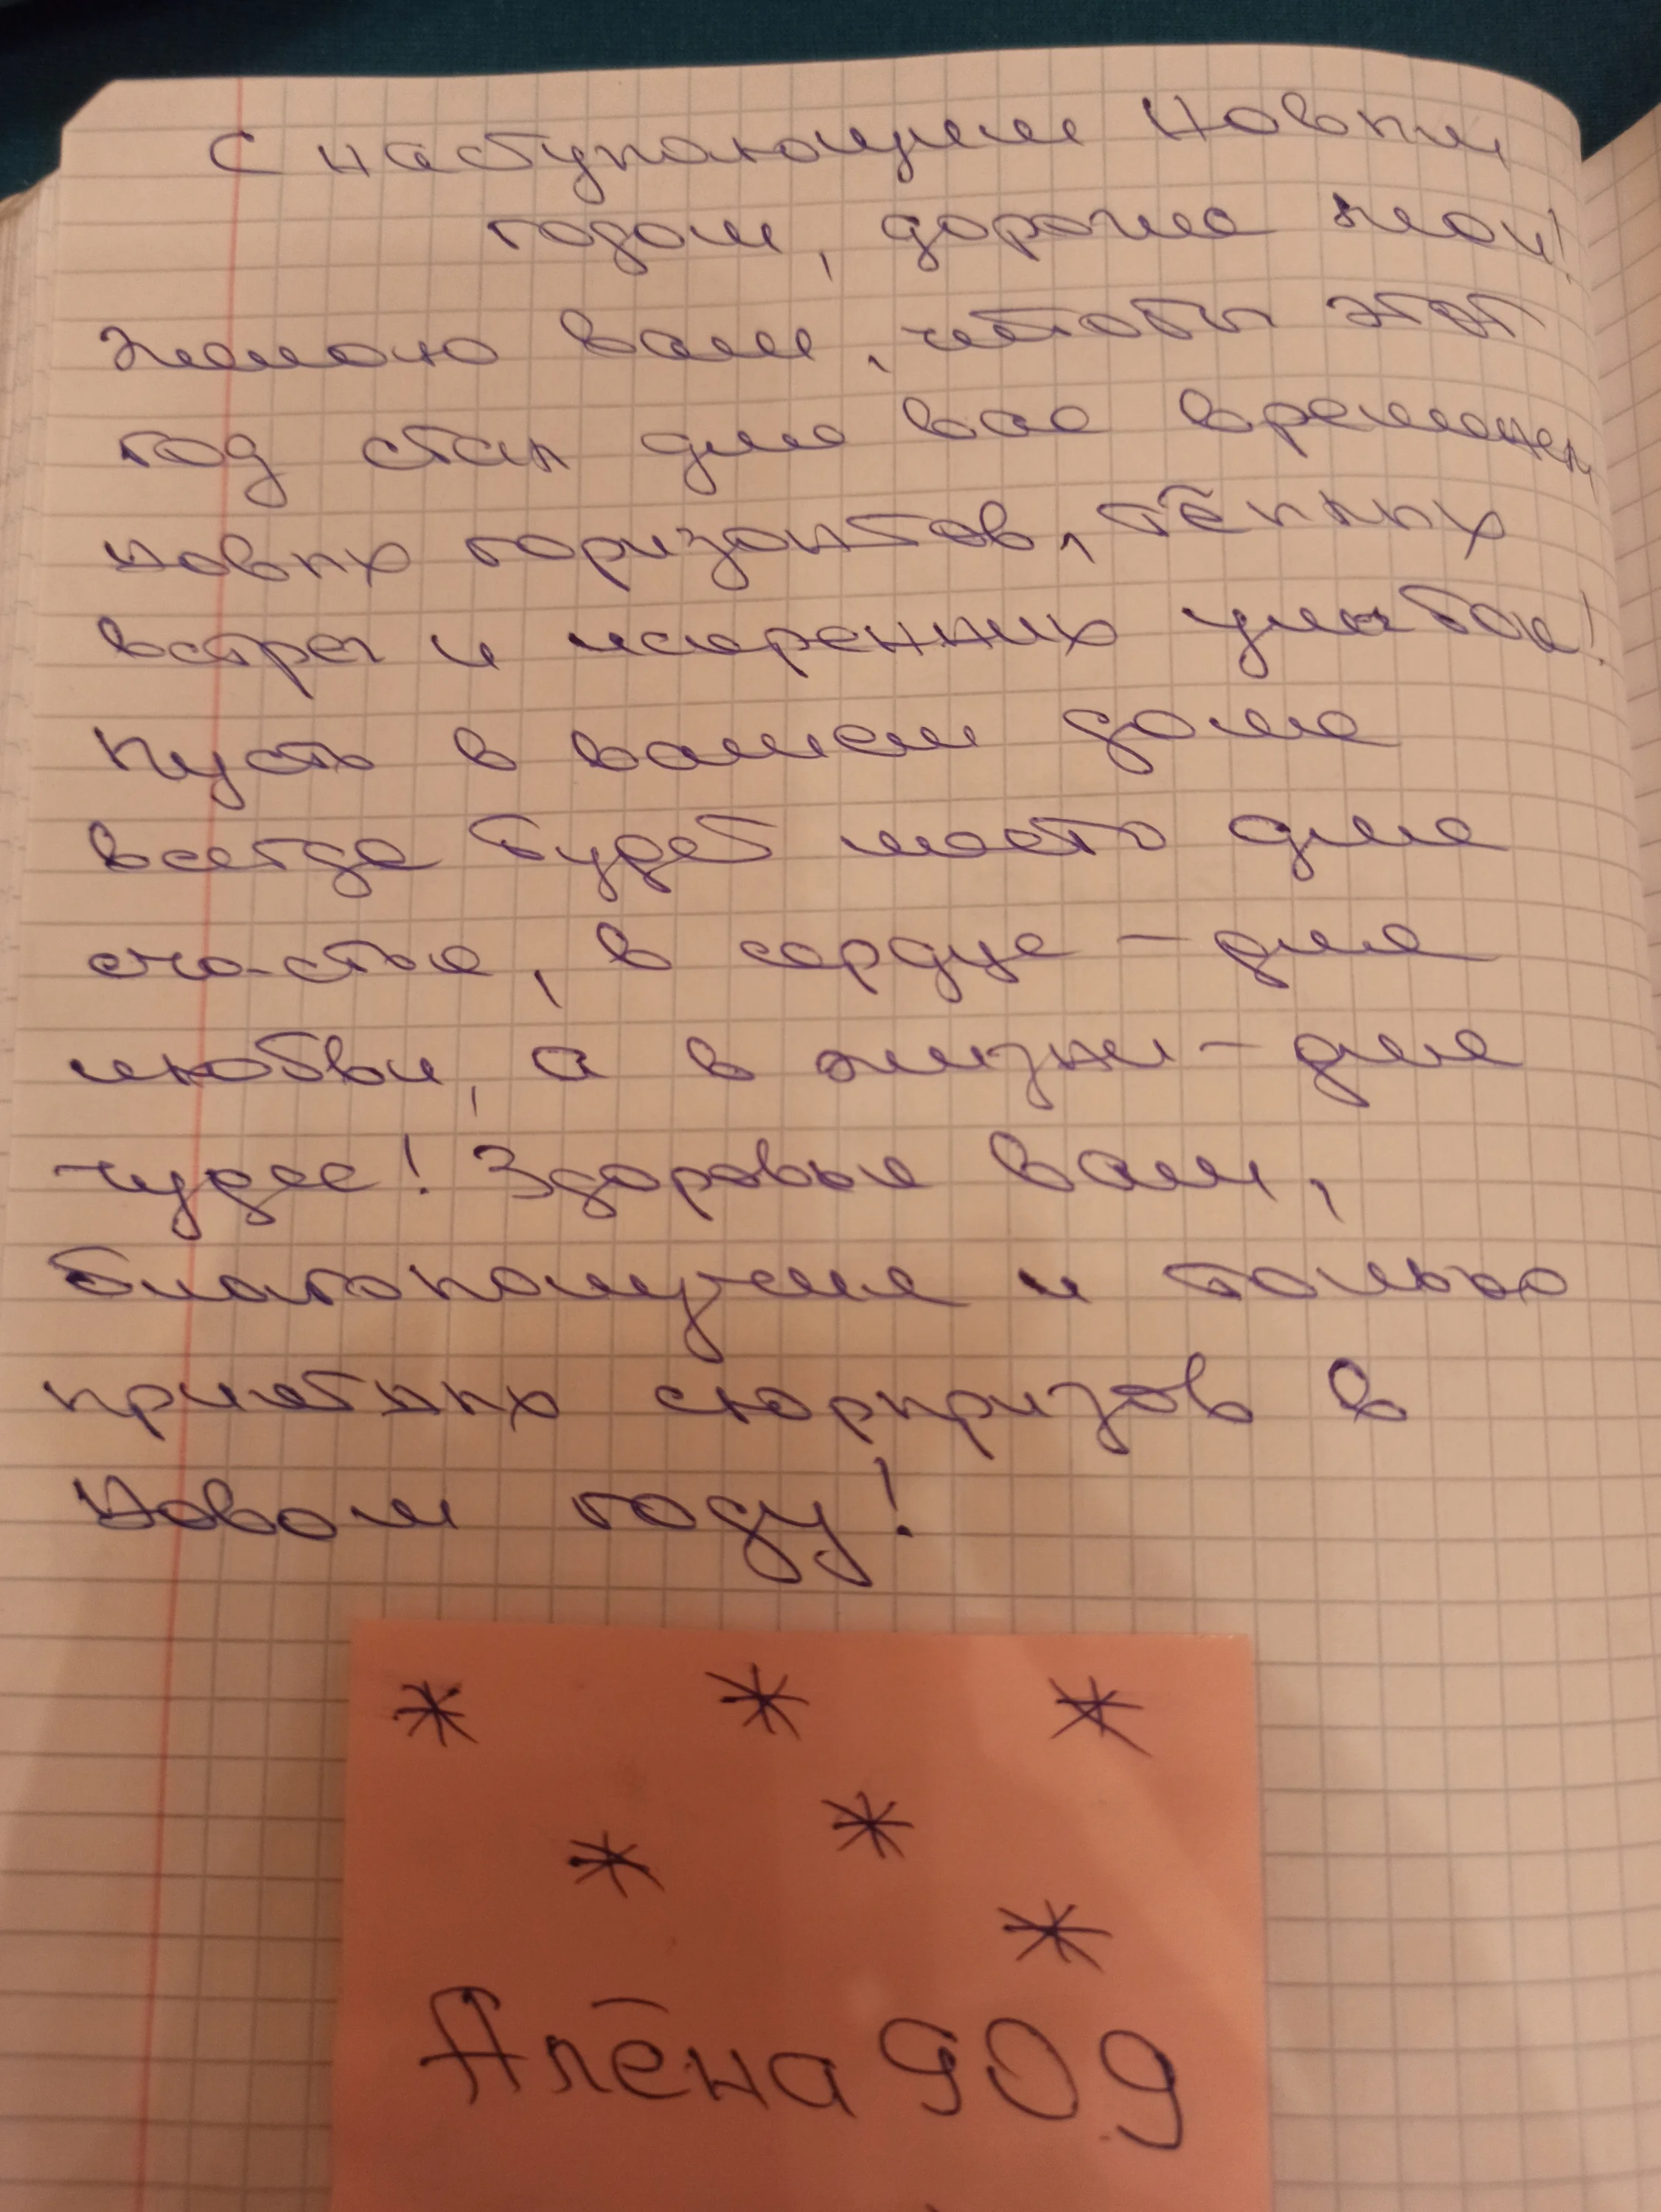 С наступающим Новым
годом, дорогие мои!
Желаю вам, чтобы этот
год стал для вас временем
новых горизонтов, тёплых
встреч и искренних улыбок!
Пусть в вашем доме
всегда будет место для
счастья, в сердце – для
любви, а в жизни – для
чудес! Здоровья вам,
благополучия и только
приятных сюрпризов в
Новом году!
Алёна 909